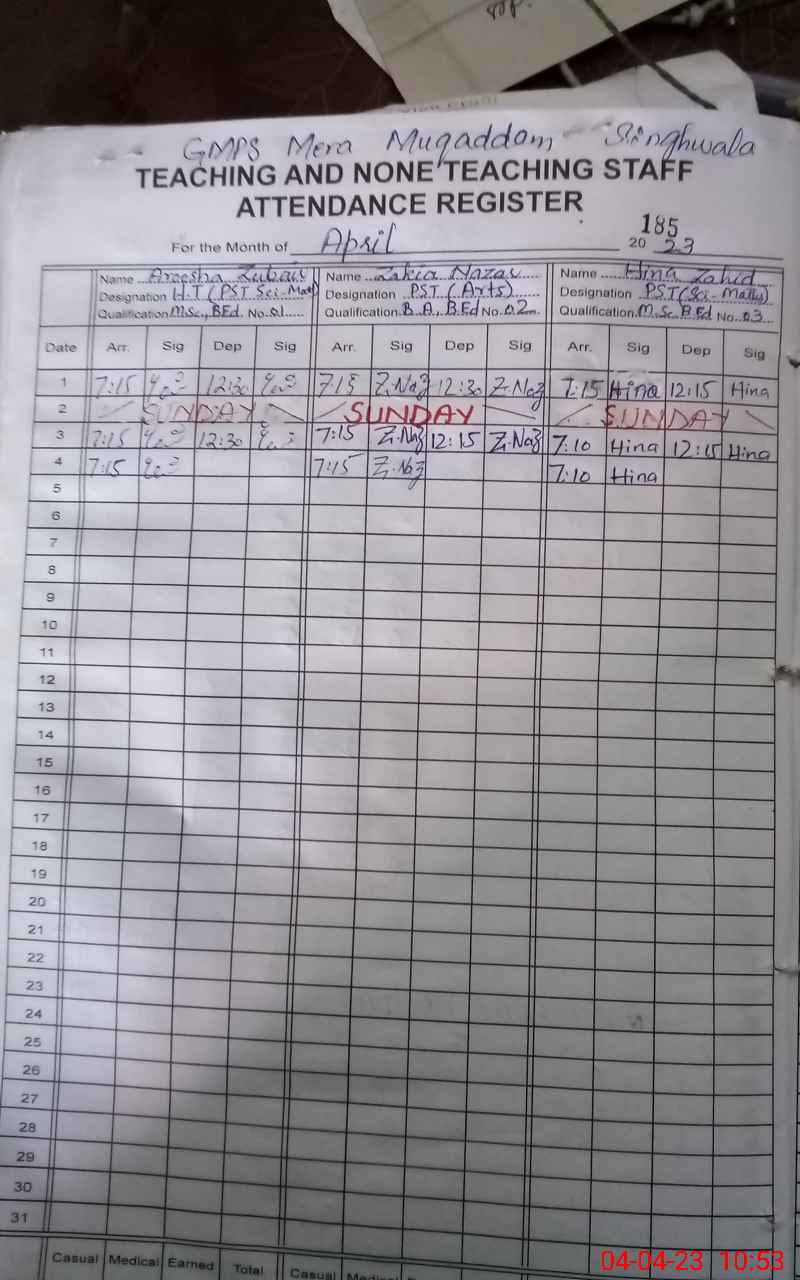 GMPS Mera Muqaddam Singhwala
TEACHING AND NONE TEACHING STAFF
ATTENDANCE REGISTER
185
For the Month of April 20 23
Name Areesha Zubair Name Zakia Nazar Name Hina Zahid
Designation H.T (PST Sci-Math) Designation PST (Arts) Designation PST (Sci-Math)
Qualification M.Sc, B.Ed. No. 01 Qualification B.A, B.Ed No. 02 Qualification M.Sc B.Ed No. 03
Date Arr. Sig Dep Sig Arr. Sig Dep Sig Arr. Sig Dep Sig
1 7:15 12:30 7:15 Z.Naz 12:30 Z.Naz 7:15 Hina 12:15 Hina
2 SUNDAY SUNDAY SUNDAY
3 7:15 12:30 7:15 Z.Naz 12:15 Z.Naz 7:10 Hina 12:15 Hina
4 7:15 7:15 Z.Naz 7:10 Hina
5
6
7
8
9
10
11
12
13
14
15
16
17
18
19
20
21
22
23
24
25
26
27
28
29
30
31
Casual Medical Earned Total Casual
04-04-23 10:53